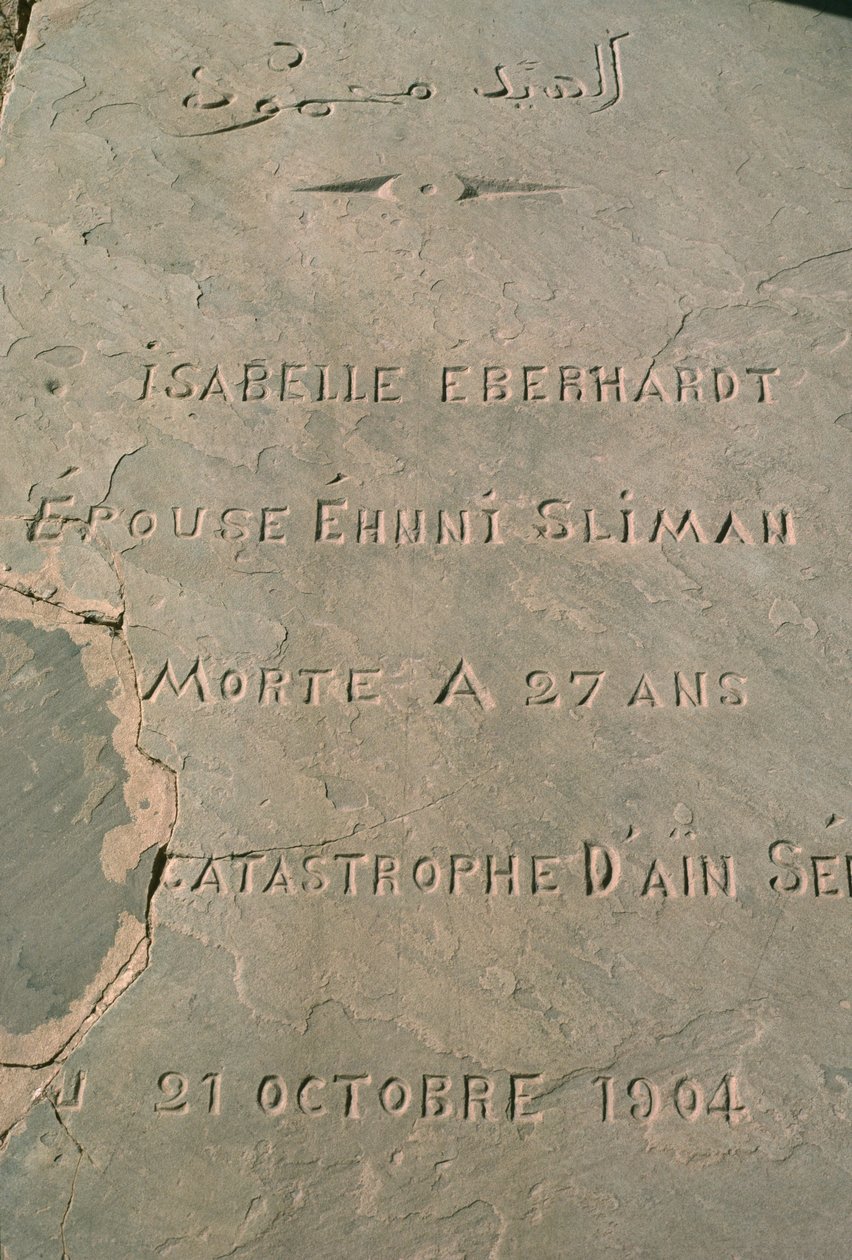 السيد محمود
ISABELLE EBERHARDT
ÉPOUSE ÉHNNI SLIMAN
MORTE A 27 ANS
CATASTROPHE D'AÏN SÉ
U 21 OCTOBRE 1904